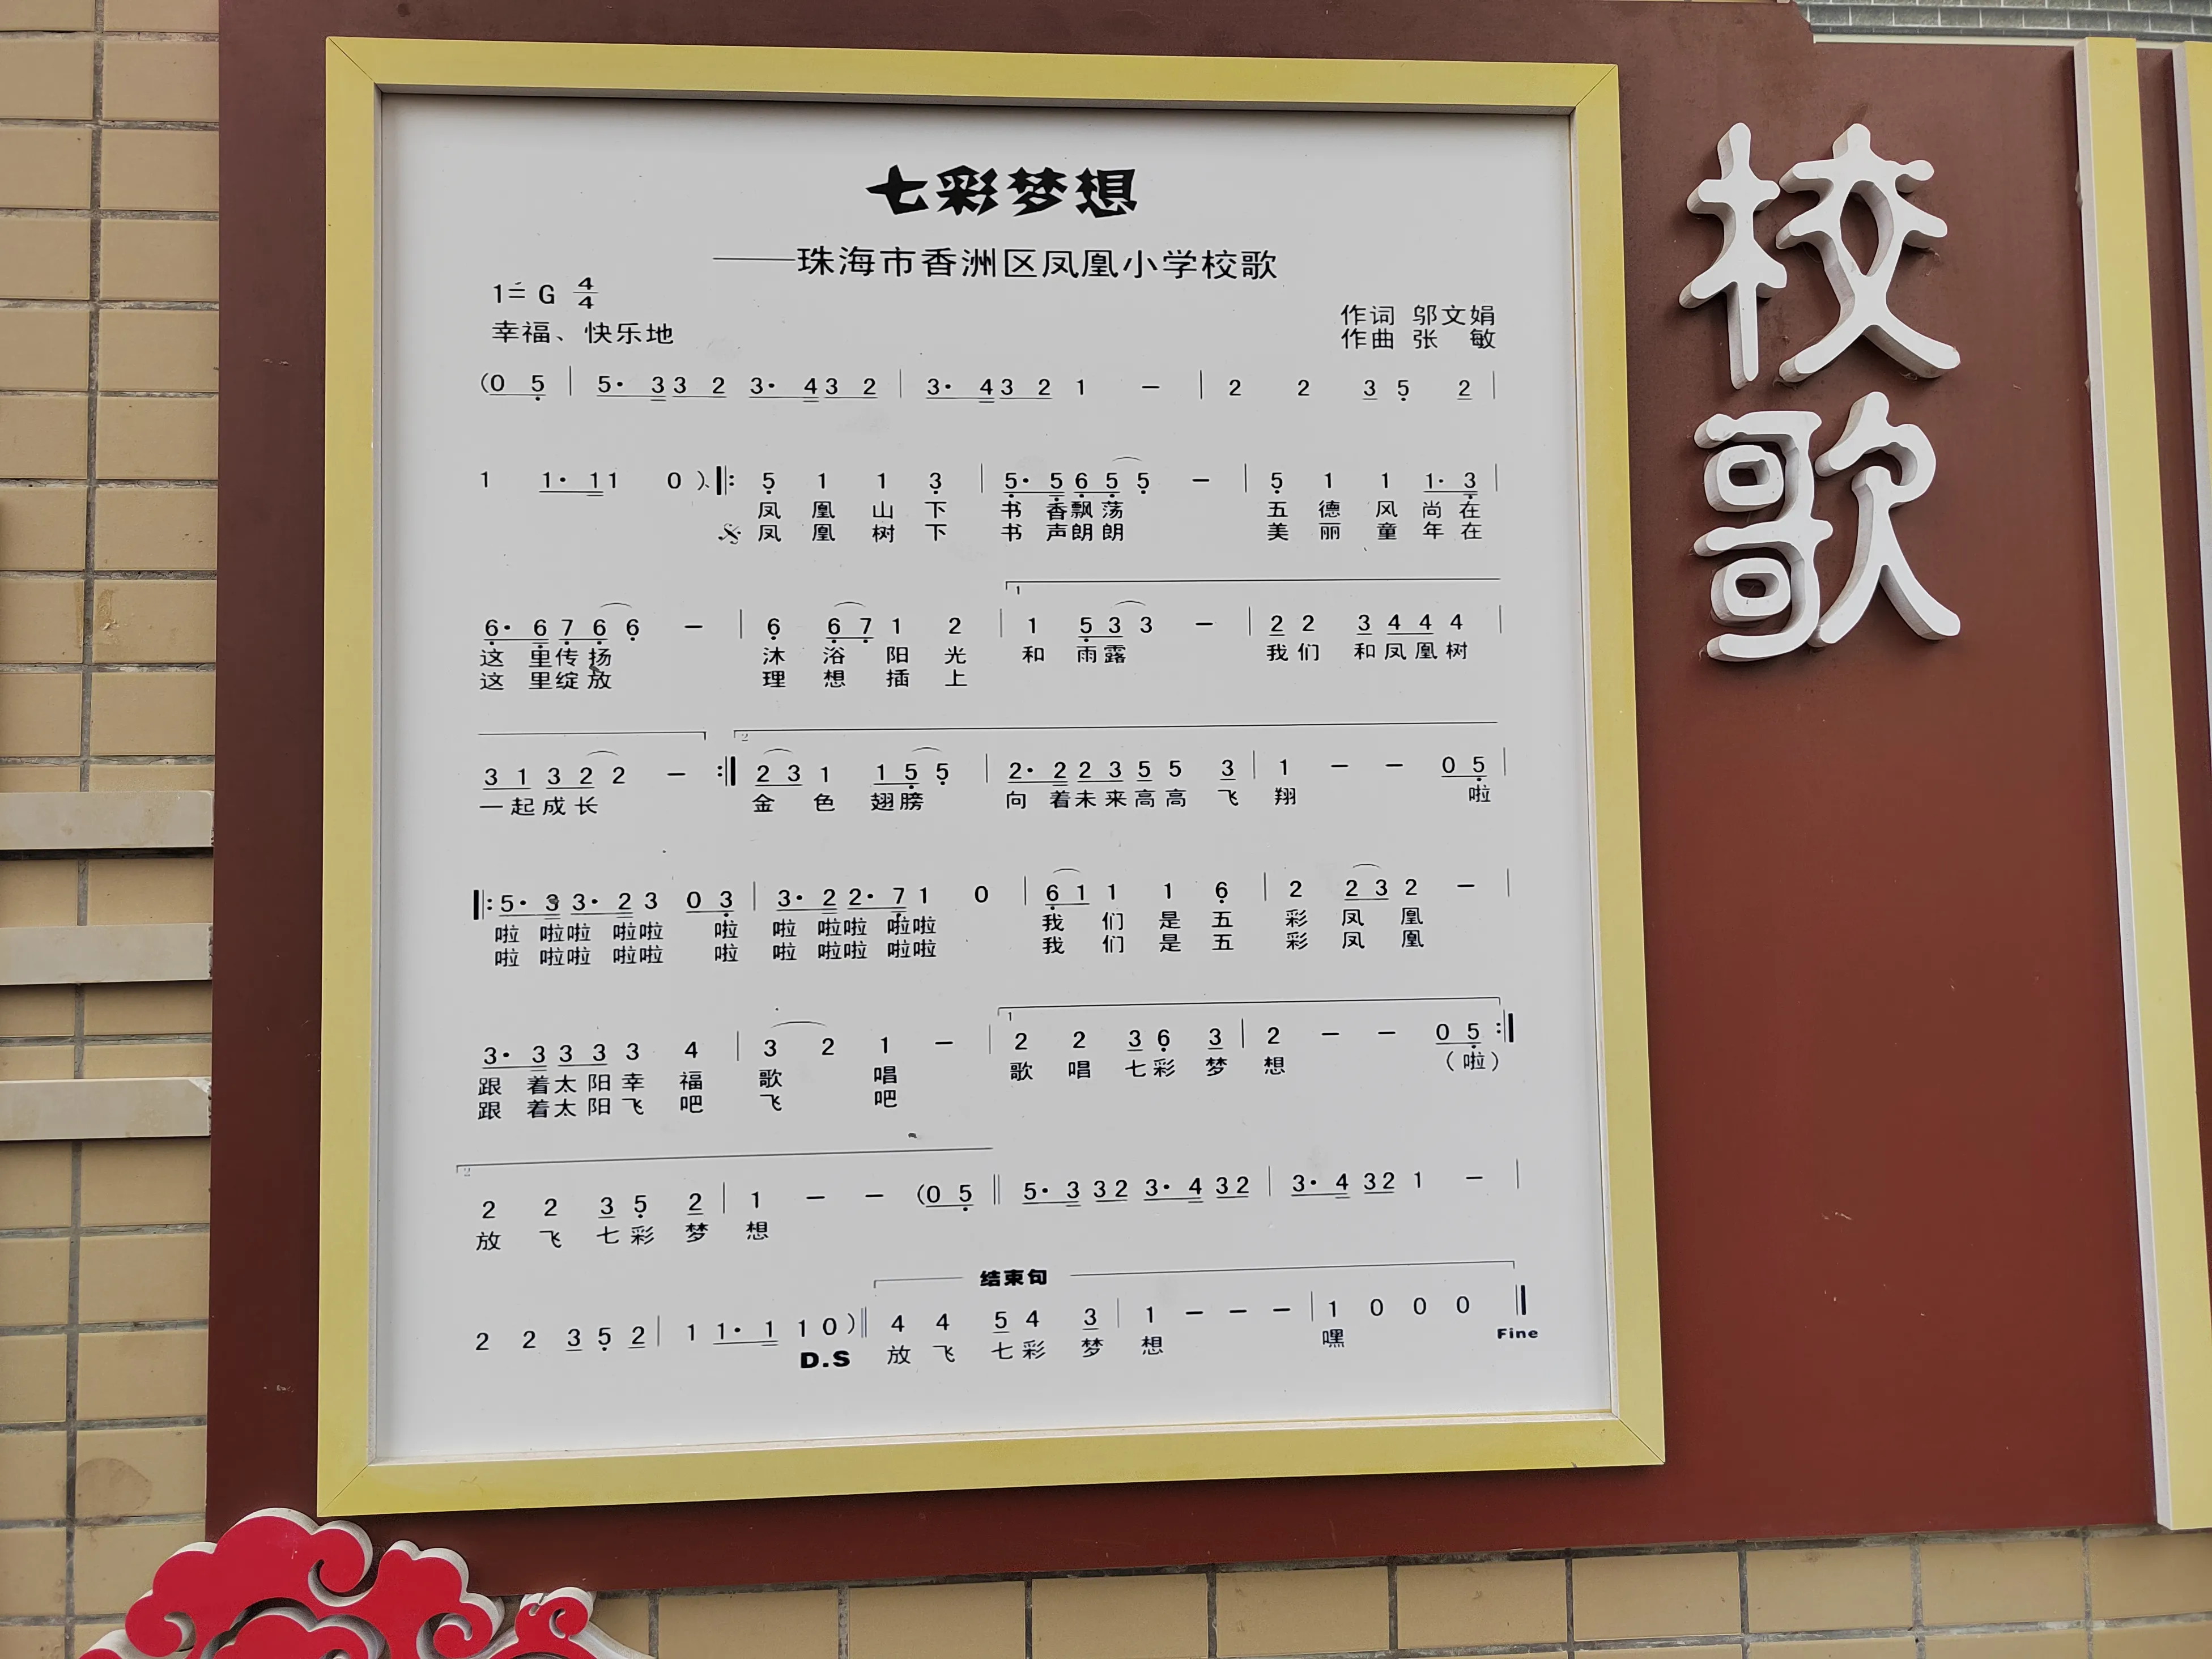 七彩梦想
——珠海市香洲区凤凰小学校歌
1= G 4/4
幸福、快乐地
作词 邬文娟
作曲 张 敏
(0 5 | 5· 3 3 2 3· 4 3 2 | 3· 4 3 2 1 — | 2 2 3 5 2 |
1 1· 1 1 0 ) ‖: 5 1 1 3 | 5· 5 6 5 5 — | 5 1 1 1· 3 |
凤 凰 山 下 书 香 飘 荡 五 德 风 尚 在
𝄋 凤 凰 树 下 书 声 朗 朗 美 丽 童 年 在
1
6· 6 7 6 6 — | 6 6 7 1 2 | 1 5 3 3 — | 2 2 3 4 4 4 |
这 里 传 扬 沐 浴 阳 光 和 雨 露 我 们 和 凤 凰 树
这 里 绽 放 理 想 插 上
2
3 1 3 2 2 — :‖ 2 3 1 1 5 5 | 2· 2 2 3 5 5 3 | 1 — — 0 5 |
一 起 成 长 金 色 翅 膀 向 着 未 来 高 高 飞 翔 啦
‖: 5· 3 3· 2 3 0 3 | 3· 2 2· 7 1 0 | 6 1 1 1 6 | 2 2 3 2 — |
啦 啦 啦 啦 啦 啦 啦 啦 啦 啦 啦 我 们 是 五 彩 凤 凰
啦 啦 啦 啦 啦 啦 啦 啦 啦 啦 啦 我 们 是 五 彩 凤 凰
1
3· 3 3 3 3 4 | 3 2 1 — | 2 2 3 6 3 | 2 — — 0 5 :‖
跟 着 太 阳 幸 福 歌 唱 歌 唱 七 彩 梦 想 （啦）
跟 着 太 阳 飞 吧 飞 吧
2
2 2 3 5 2 | 1 — — (0 5 ‖ 5· 3 3 2 3· 4 3 2 | 3· 4 3 2 1 — |
放 飞 七 彩 梦 想
结束句
2 2 3 5 2 | 1 1· 1 1 0 ) ‖ 4 4 5 4 3 | 1 — — — | 1 0 0 0 ‖
D.S 放 飞 七 彩 梦 想 嘿 Fine
校歌